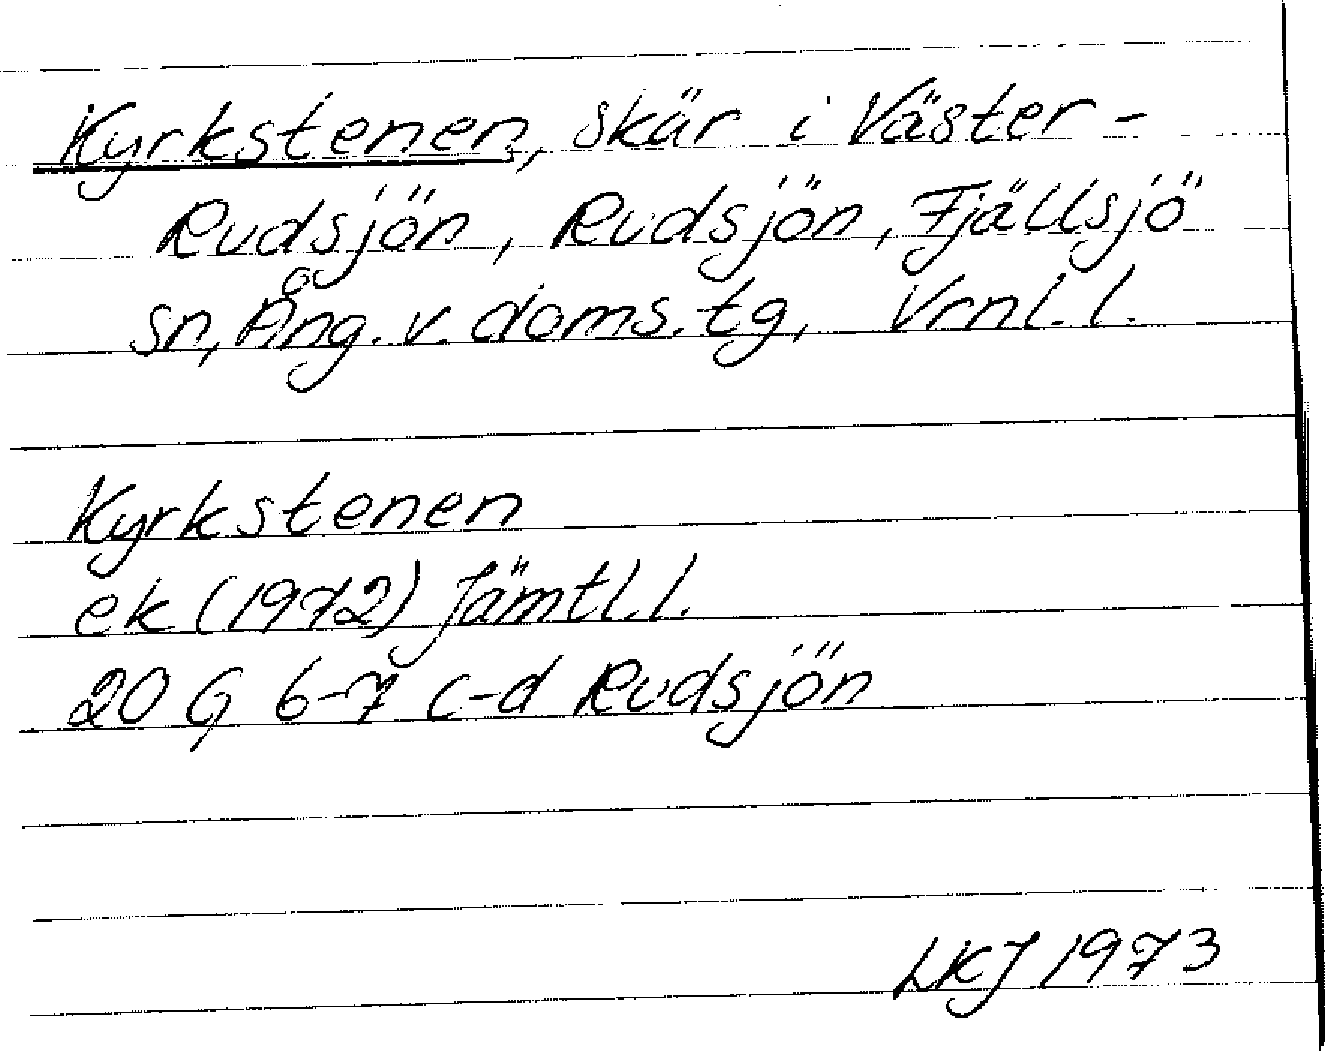 Kyrkstenen, skär i Väster-
Rudsjön, Rudsjön, Fjällsjö
sn, Ång. v. doms. tg, Vrnl. l.
Kyrkstenen
ek (1972) Jämtl. l.
20 G 6-7 c-d Rudsjön
LKJ 1973